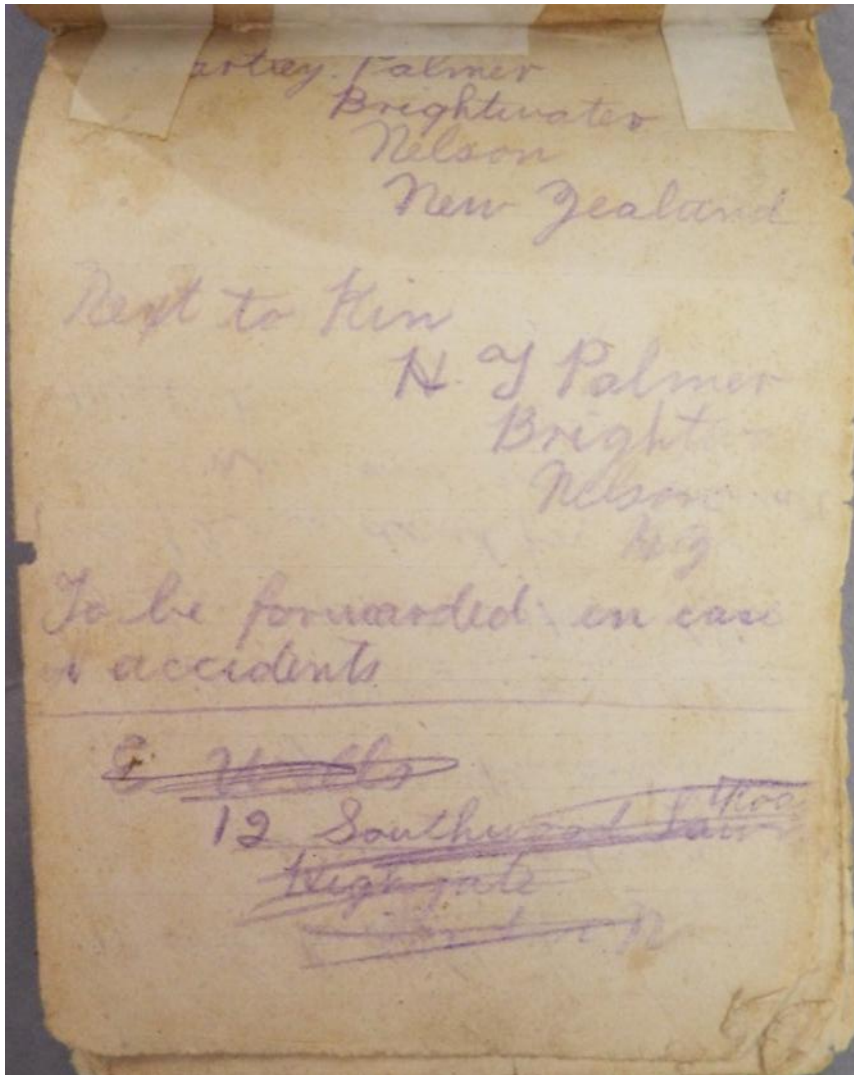 artley. Palmer
Brightwater
Nelson
New Zealand
Next to Kin
H. J Palmer
Bright
Nelson
N Z
To be forwarded in case
accidents
E Wells
12 Southwood Lawn
Road
Highgate
London N